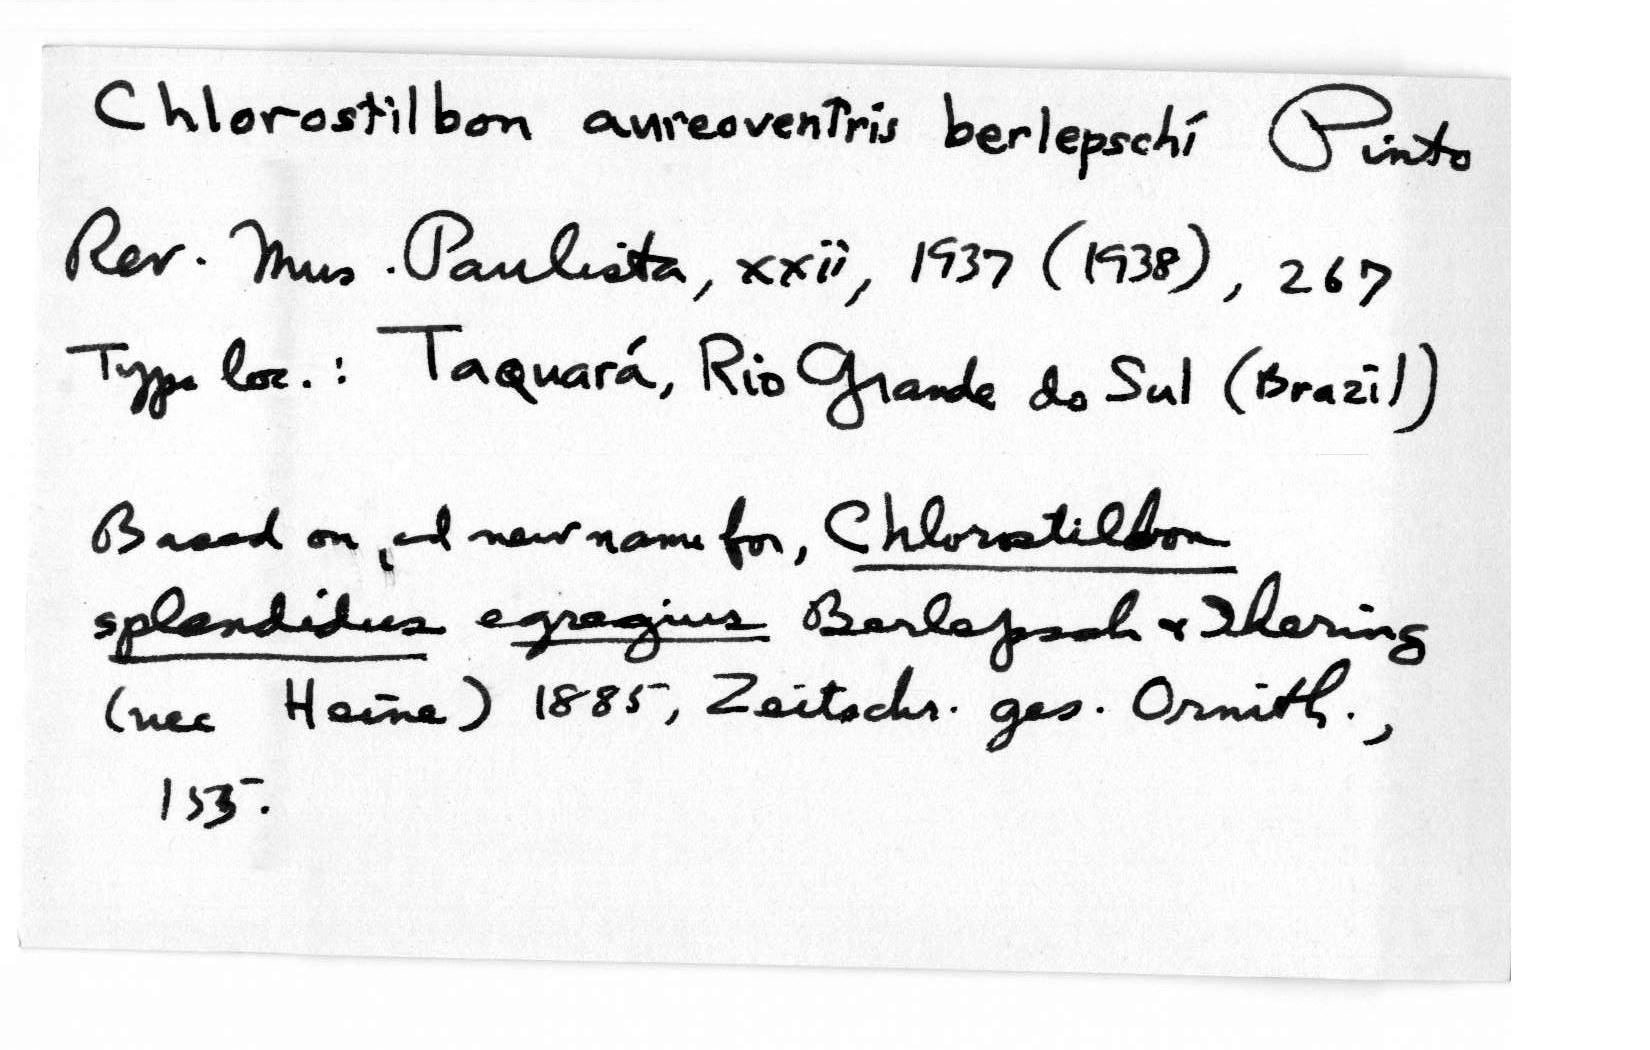 Chlorostilbon aureoventris berlepschi Pinto
Rev. Mus. Paulista, xxii, 1937 (1938), 267
Type loc.: Taquará, Rio Grande do Sul (Brazil)
Based on, and new name for, Chlorostilbon
splendidus egregius Berlepsch & Ihering
(nec Heine) 1885, Zeitschr. ges. Ornith.,
153.